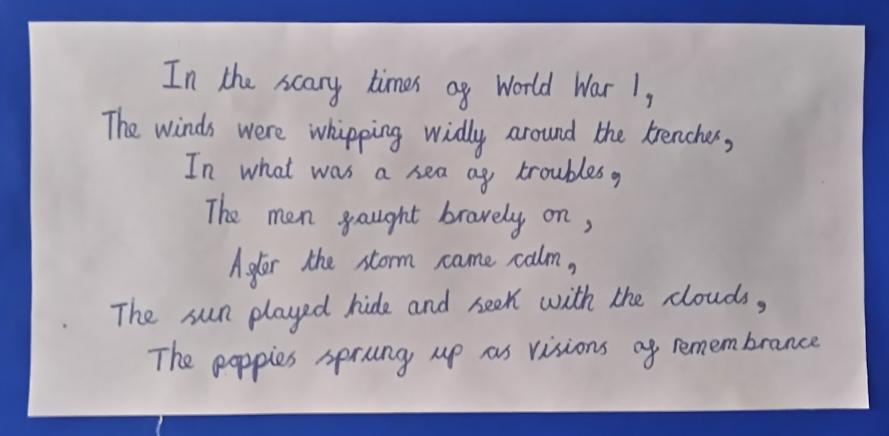 In the scary times of World War 1,
The winds were whipping widly around the trenches,
In what was a sea of troubles,
The men faught bravely on,
After the storm came calm,
The sun played hide and seek with the clouds,
The poppies sprung up as visions of remembrance